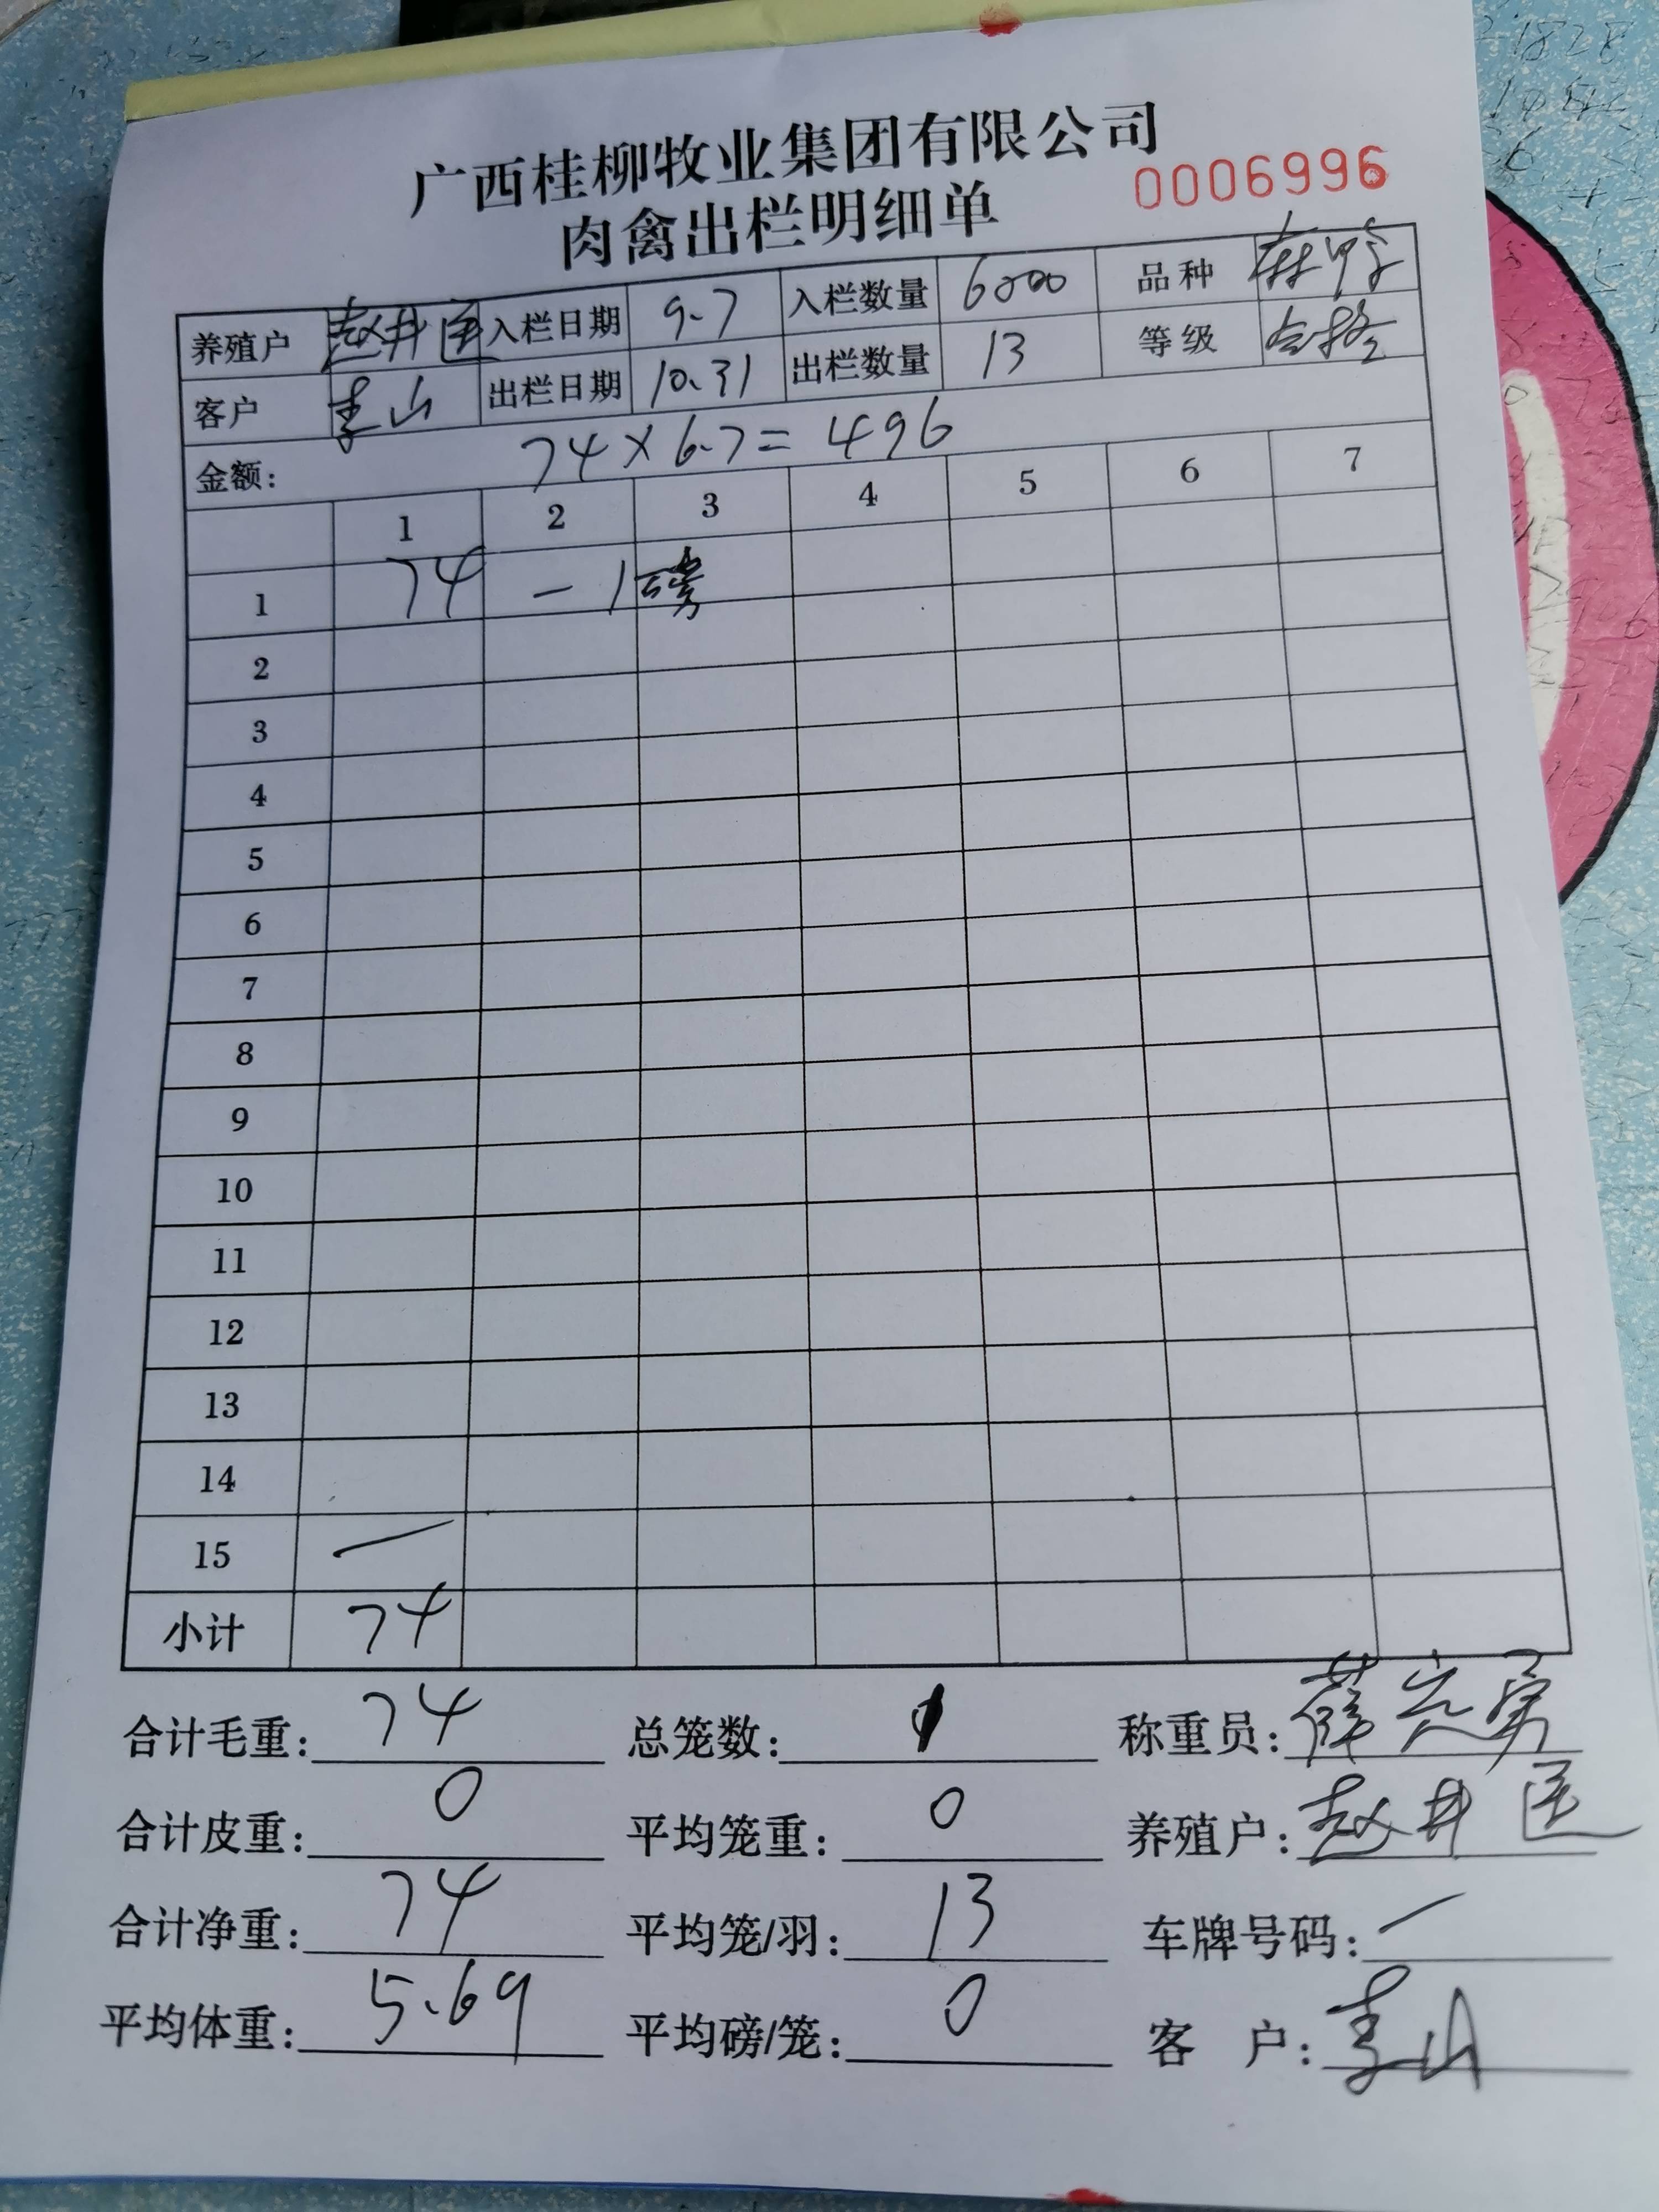 广西桂柳牧业集团有限公司
肉禽出栏明细单 0006996
养殖户 赵井国 入栏日期 9.7 入栏数量 6000 品种 麻鸭
客户 李山 出栏日期 10.31 出栏数量 13 等级 合格
金额: 74×6.7=496
1 2 3 4 5 6 7
1 74 - 1磅
2
3
4
5
6
7
8
9
10
11
12
13
14
15 —
小计 74
合计毛重: 74 总笼数: 1 称重员: 薛
合计皮重: 0 平均笼重: 0 养殖户: 赵井
合计净重: 74 平均笼/羽: 13 车牌号码: —
平均体重: 5.69 平均磅/笼: 0 客 户: 李山